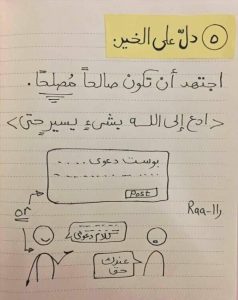 ٥ دلّ على الخير
اجتهد أن تكون صالحاً مُصلحًا.
< ادع إلى الله بشيءٍ يسيرٍ حتى >
بوست دعوى
Post
or
Raa-را
كلام دعوى
عندك
حق